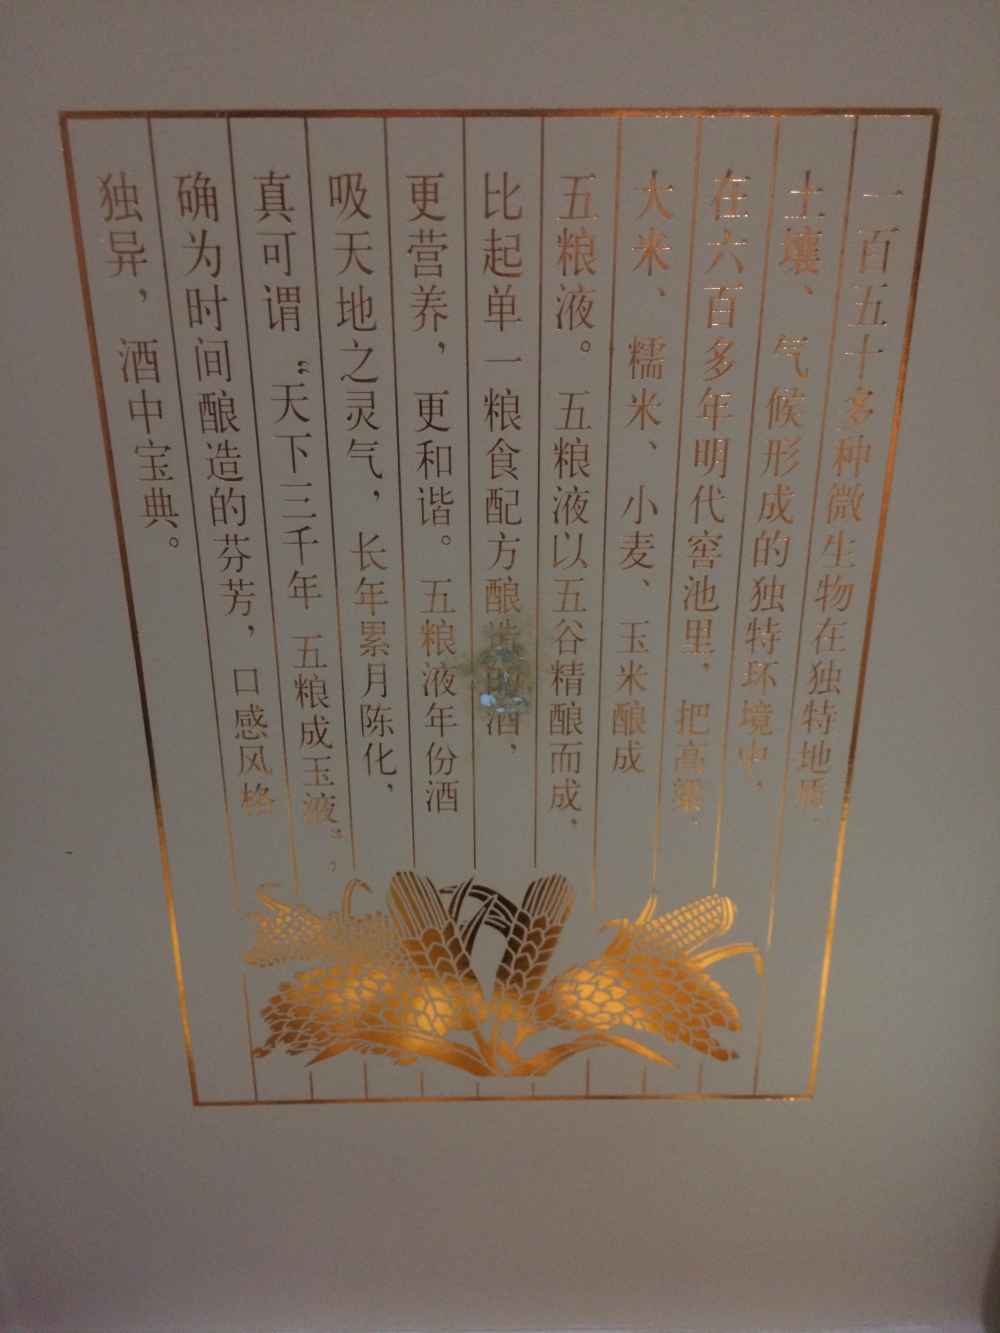 一百五十多种微生物在独特地质、
土壤、气候形成的独特环境中，
在六百多年明代窖池里，把高粱、
大米、糯米、小麦、玉米酿成
五粮液。五粮液以五谷精酿而成，
比起单一粮食配方酿造的酒，
更营养，更和谐。五粮液年份酒
吸天地之灵气，长年累月陈化，
真可谓“天下三千年 五粮成玉液”，
确为时间酿造的芬芳，口感风格
独异，酒中宝典。